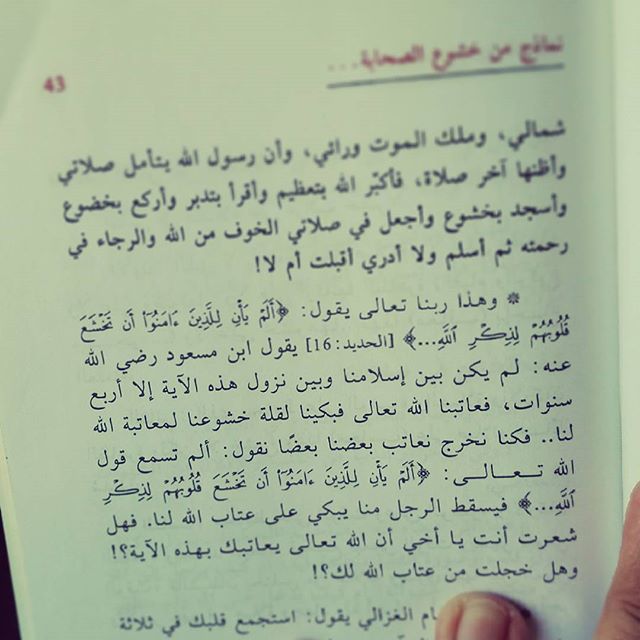 نماذج من خشوع الصحابة...
43
شمالي، وملك الموت ورائي، وأن رسول الله يتأمل صلاتي
وأظنها آخر صلاة، فأكبّر الله بتعظيم وأقرأ بتدبر وأركع بخضوع
وأسجد بخشوع وأجعل في صلاتي الخوف من الله والرجاء في
رحمته ثم أسلم ولا أدري أقبلت أم لا!
* وهذا ربنا تعالى يقول: ﴿أَلَمْ يَأْنِ لِلَّذِينَ ءَامَنُوٓا۟ أَن تَخْشَعَ
قُلُوبُهُمْ لِذِكْرِ ٱللَّهِ...﴾ [الحديد:16] يقول ابن مسعود رضي الله
عنه: لم يكن بين إسلامنا وبين نزول هذه الآية إلا أربع
سنوات، فعاتبنا الله تعالى فبكينا لقلة خشوعنا لمعاتبة الله
لنا.. فكنا نخرج نعاتب بعضنا بعضًا نقول: ألم تسمع قول
الله تـعـالـى: ﴿أَلَمْ يَأْنِ لِلَّذِينَ ءَامَنُوٓا۟ أَن تَخْشَعَ قُلُوبُهُمْ لِذِكْرِ
ٱللَّهِ...﴾ فيسقط الرجل منا يبكي على عتاب الله لنا. فهل
شعرت أنت يا أخي أن الله تعالى يعاتبك بهذه الآية؟!
وهل خجلت من عتاب الله لك؟!
الغزالي يقول: استجمع قلبك في ثلاثة